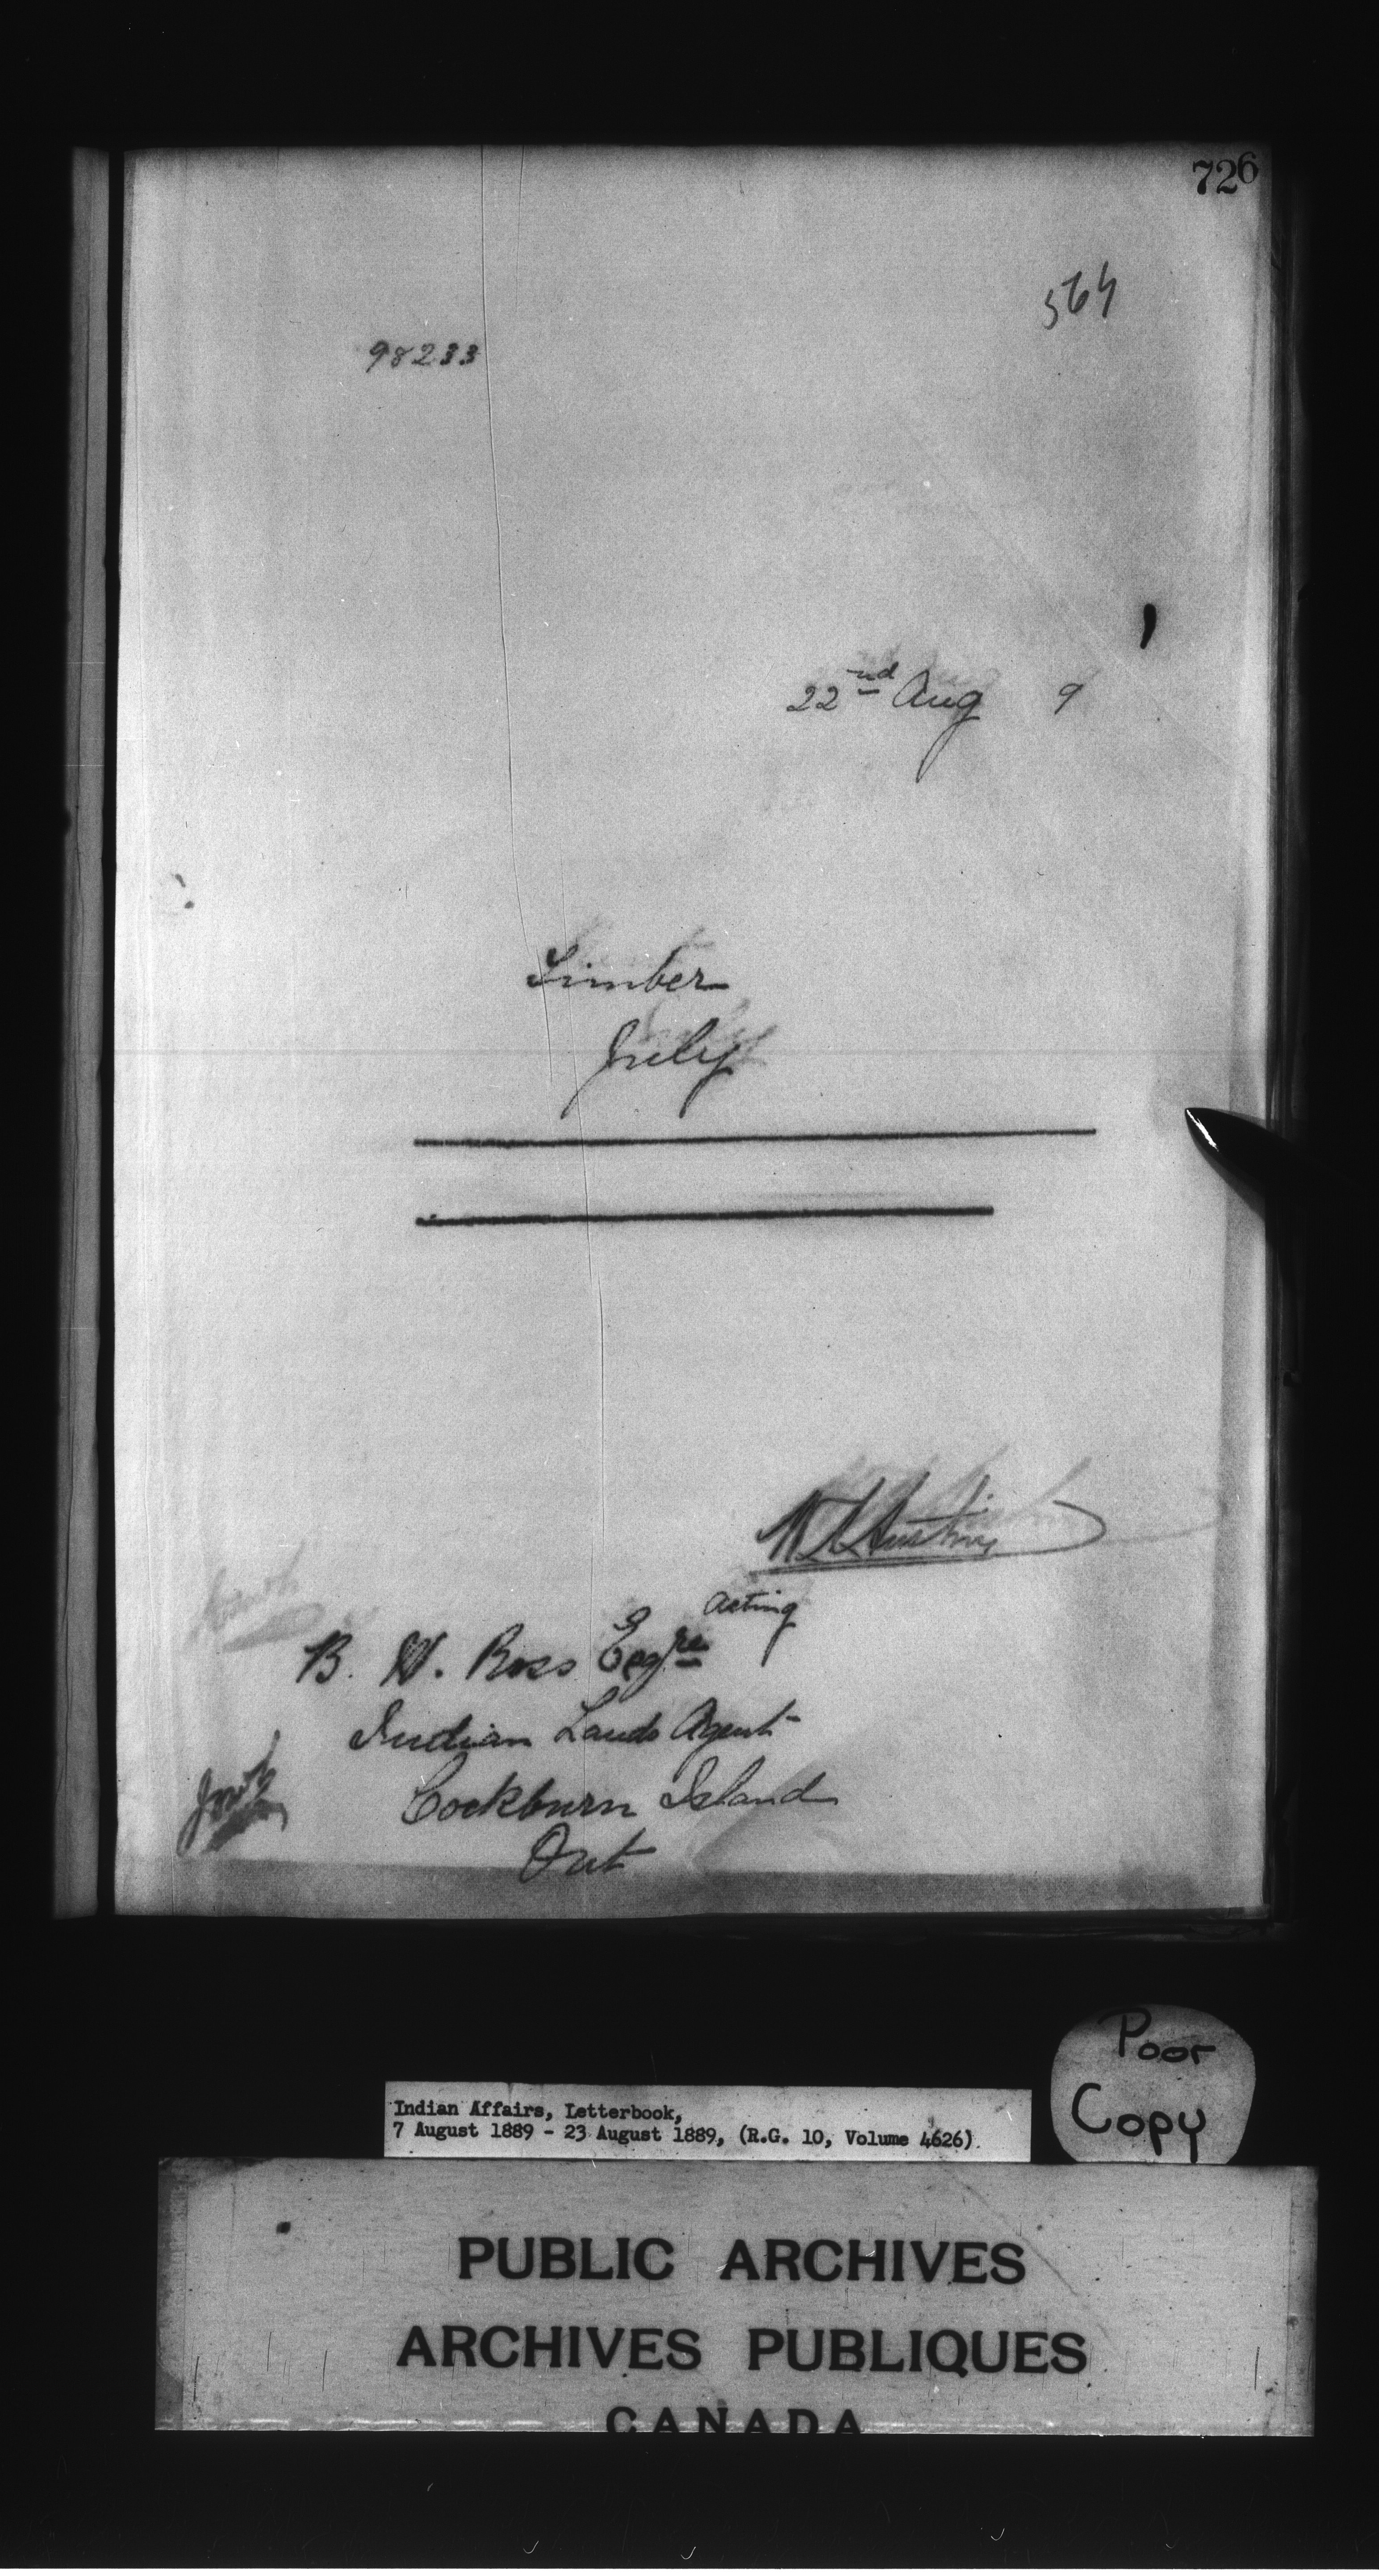 726
564
98233
22nd Aug 9
Timber
July
acting
B. W. Ross Esqre
Indian Lands Agent
Cockburn Island
Ont
Poor
Copy
Indian Affairs, Letterbook,
7 August 1889 - 23 August 1889, (R.G. 10, Volume 4626).
PUBLIC ARCHIVES
ARCHIVES PUBLIQUES
CANADA